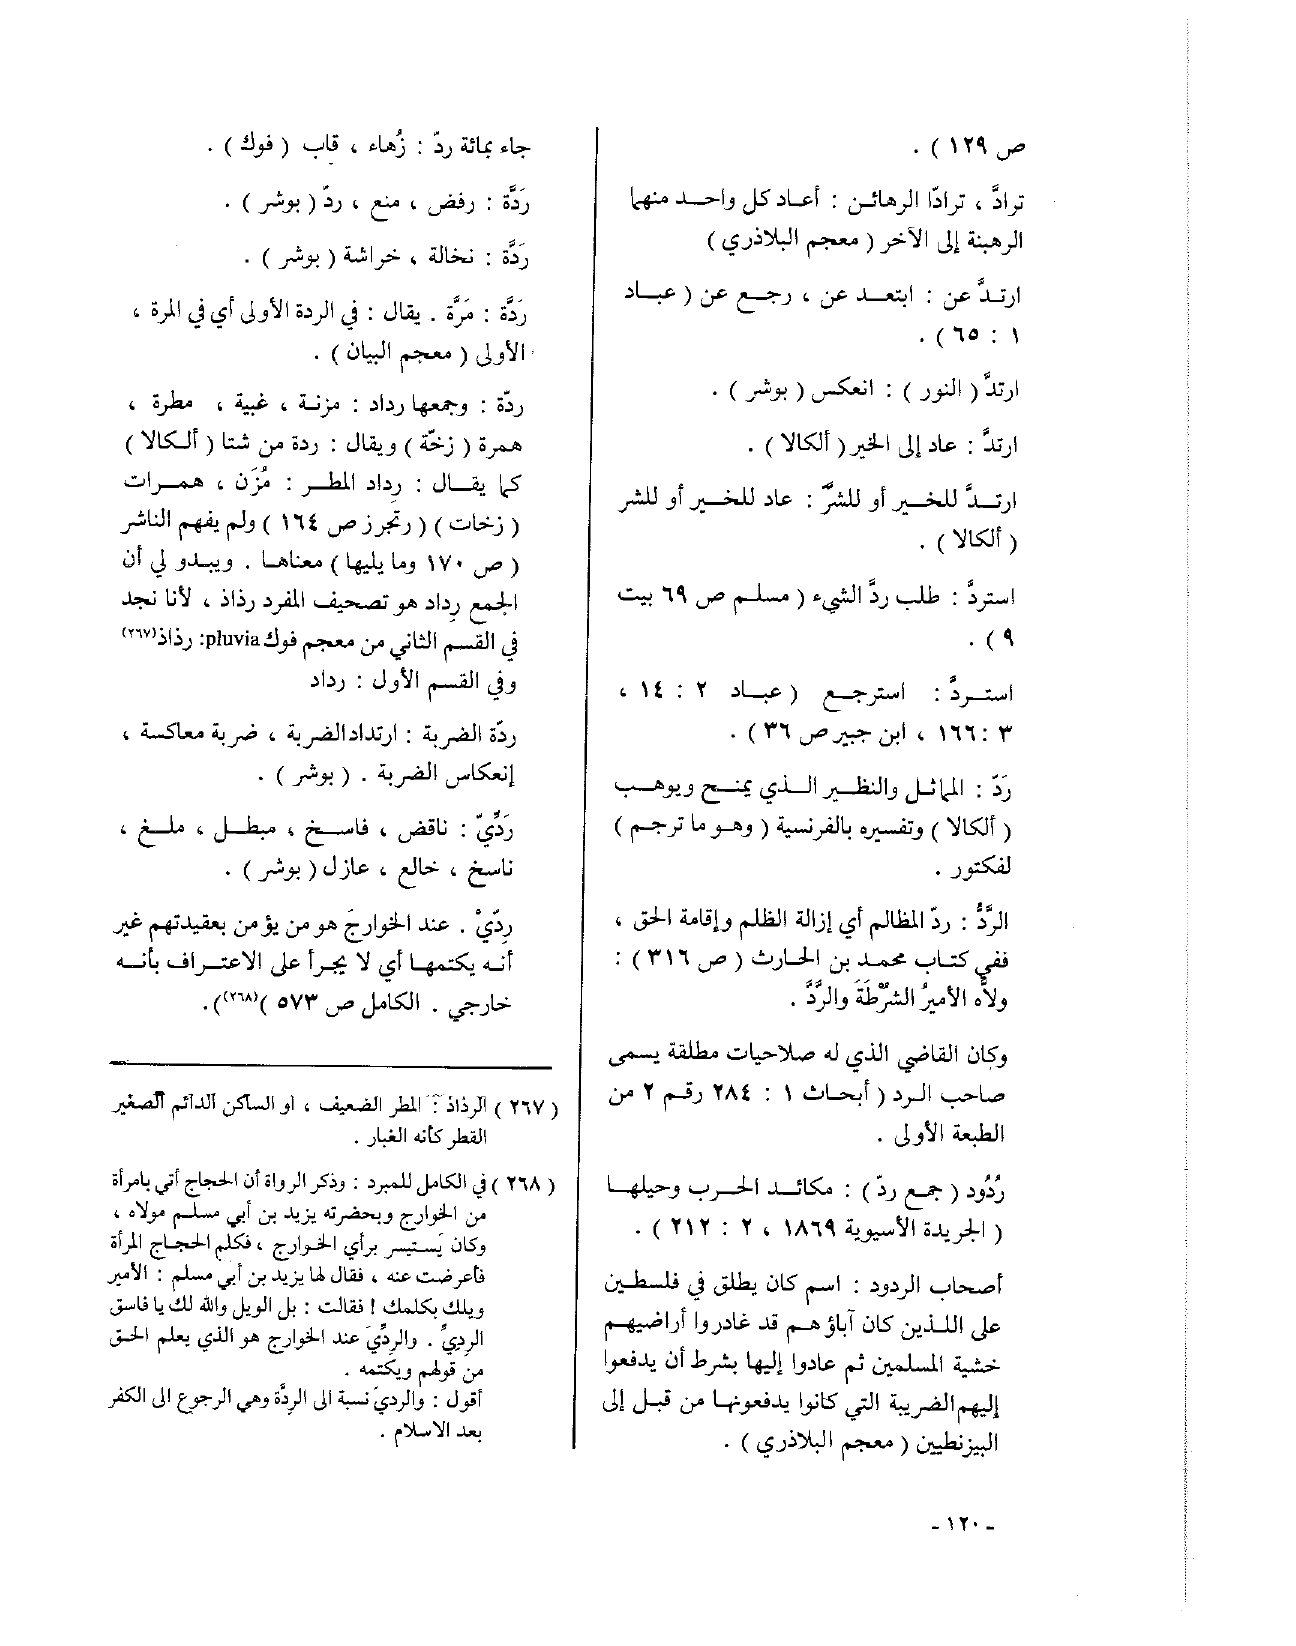 ص ١٢٩ ) .
ترادَّ ، ترادّا الرهائن : أعاد كل واحد منهما
الرهينة إلى الآخر ( معجم البلاذري )
ارتدَّ عن : ابتعد عن ، رجع عن ( عباد
١ : ٦٥ ) .
ارتدَّ ( النور ) : انعكس ( بوشر ) .
ارتدَّ : عاد إلى الخير ( ألكالا ) .
ارتدَّ للخير أو للشرِّ : عاد للخير أو للشر
( ألكالا ) .
استردَّ : طلب ردَّ الشيء ( مسلم ص ٦٩ بيت
٩ ) .
استردَّ : استرجع ( عباد ٢ : ١٤ ،
٣ : ١٦٦ ، ابن جبير ص ٣٦ ) .
رَدّ : المماثل والنظير الذي يمنح ويوهب
( ألكالا ) وتفسيره بالفرنسية ( وهو ما ترجم )
لفكتور .
الرَّدُّ : ردّ المظالم أي إزالة الظلم وإقامة الحق ،
ففي كتاب محمد بن الحارث ( ص ٣١٦ ) :
ولاّه الأميرُ الشرَّطَةَ والرَّدَّ .
وكان القاضي الذي له صلاحيات مطلقة يسمى
صاحب الرد ( أبحاث ١ : ٢٨٤ رقم ٢ من
الطبعة الأولى .
رُدُود ( جمع ردّ ) : مكائد الحرب وحيلها
( الجريدة الآسيوية ١٨٦٩ ، ٢ : ٢١٢ ) .
أصحاب الردود : اسم كان يطلق في فلسطين
على اللذين كان آباؤهم قد غادروا أراضيهم
خشية المسلمين ثم عادوا إليها بشرط أن يدفعوا
إليهم الضريبة التي كانوا يدفعونها من قبل إلى
البيزنطيين ( معجم البلاذري ) .
جاء بمائة ردّ : زُهاء ، قاب ( فوك ) .
رَدَّة : رفض ، منع ، ردّ ( بوشر ) .
رَدَّة : نخالة ، خراشة ( بوشر ) .
رَدَّة : مَرَّة . يقال : في الردة الأولى أي في المرة ،
الأولى ( معجم البيان ) .
ردّة : وجمعها رداد : مزنة ، غبية ، مطرة ،
همرة ( زخّة ) ويقال : ردة من شتا ( ألكالا )
كما يقال : رداد المطر : مُزَن ، همرات
( زخات ) ( رتجرز ص ١٦٤ ) ولم يفهم الناشر
( ص ١٧٠ وما يليها ) معناها . ويبدو لي أن
الجمع رِداد هو تصحيف المفرد رذاذ ، لأنا نجد
في القسم الثاني من معجم فوك pluvia: رذاذ(٢٦٧)
وفي القسم الأول : رداد
ردّة الضربة : ارتداد الضربة ، ضربة معاكسة ،
إنعكاس الضربة . ( بوشر ) .
رَدِّيّ : ناقض ، فاسخ ، مبطل ، ملغ ،
ناسخ ، خالع ، عازل ( بوشر ) .
رِدّيّ . عند الخوارج هو من يؤمن بعقيدتهم غير
أنه يكتمها أي لا يجرأ على الاعتراف بأنه
خارجي . الكامل ص ٥٧٣ )(٢٦٨).
( ٢٦٧ ) الرذاذ : المطر الضعيف ، او الساكن الدائم الصغير
القطر كأنه الغبار .
( ٢٦٨ ) في الكامل للمبرد : وذكر الرواة أن الحجاج أتي بامرأة
من الخوارج وبحضرته يزيد بن أبي مسلم مولاه ،
وكان يَستيسر برأي الخوارج ، فكلم الحجاج المرأة
فأعرضت عنه ، فقال لها يزيد بن أبي مسلم : الأمير
ويلك يكلمك ! فقالت : بل الويل والله لك يا فاسق
الرديّ . والرديّ عند الخوارج هو الذي يعلم الحق
من قولهم ويكتمه .
أقول : والردي نسبة الى الردّة وهي الرجوع الى الكفر
بعد الاسلام .
- ١٢٠ -